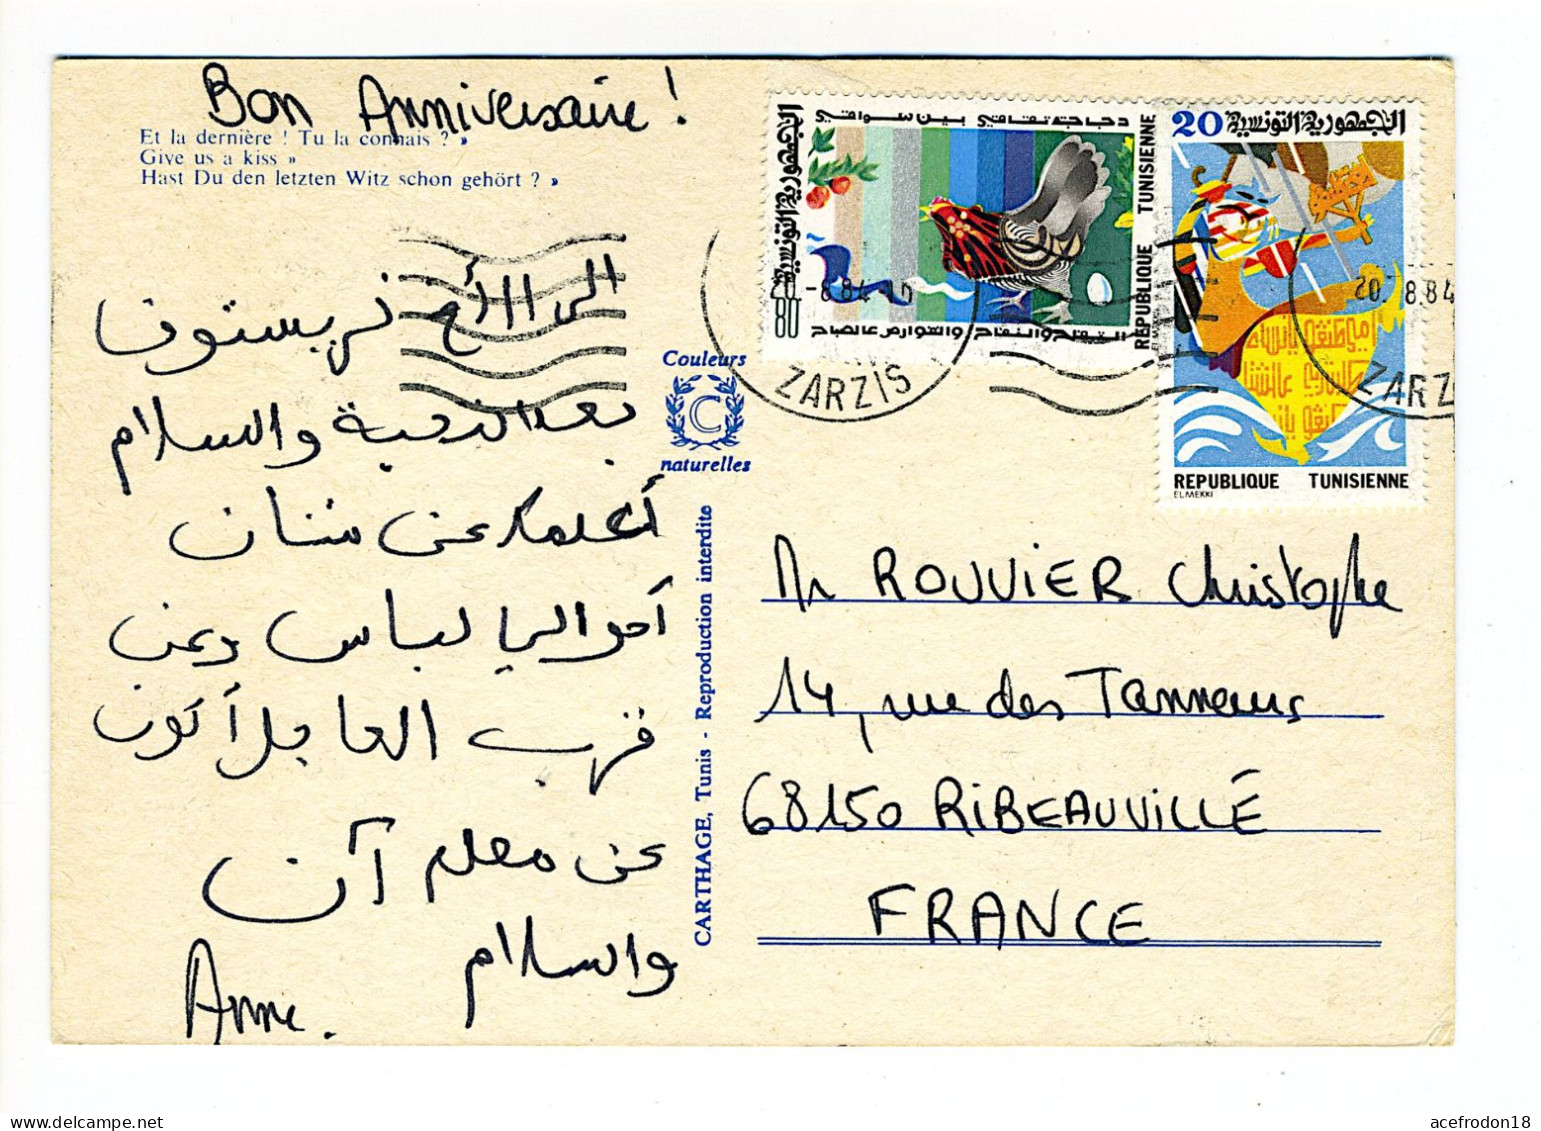 Bon Anniversaire !
Et la dernière ! Tu la connais ? »
Give us a kiss »
Hast Du den letzten Witz schon gehört ? »
الى الأخ كريستوف
بعد التحية والسلام
أعلمك عن شنان
أحوالي لباس وعن
قريب العاجل أكون
عن معلم آن
والسلام
Anne.
Couleurs
C
naturelles
CARTHAGE, Tunis - Reproduction interdite
الجمهورية التونسية
80
دجاجة تقاقي بين سواقي
REPUBLIQUE TUNISIENNE
EL MEKKI
20 الجمهورية التونسية
REPUBLIQUE TUNISIENNE
EL MEKKI
8.84
ZARZIS
20. 8.84
ZARZ
Mr ROUVIER Christophe
14, rue des Tanneurs
68150 RIBEAUVILLÉ
FRANCE
acefrodon18